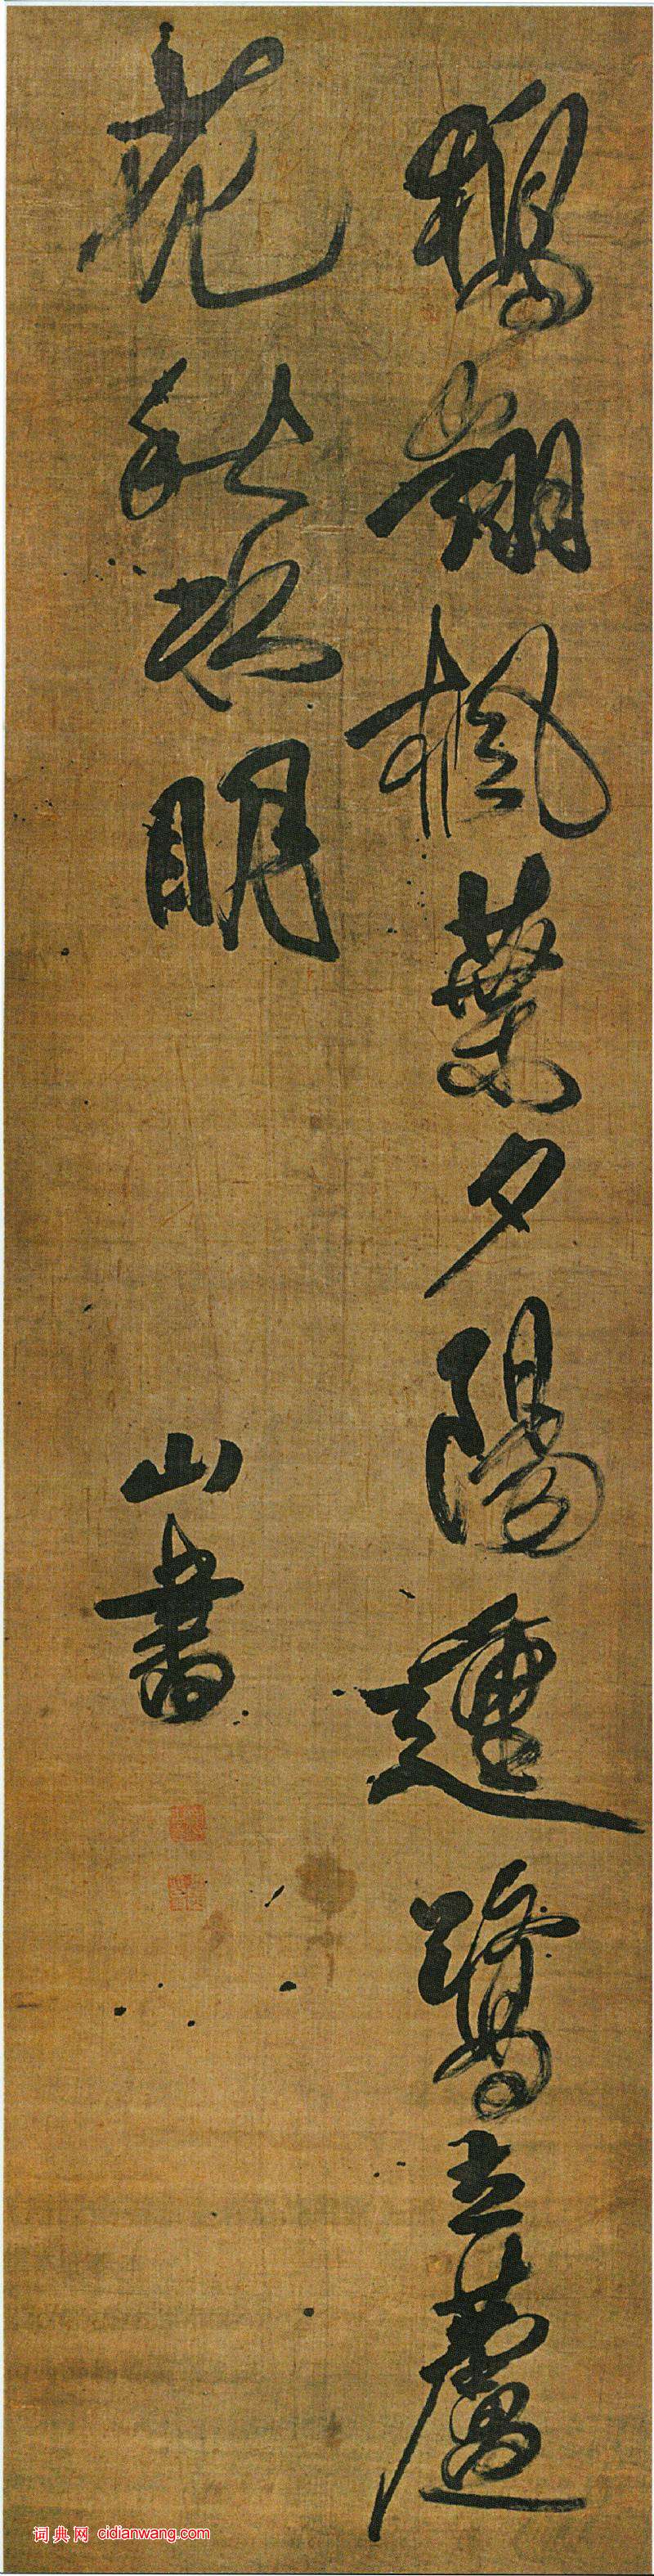 鴉翻楓葉夕陽動鷺立蘆
花秋水明
山書
词典网 cidianwang.com